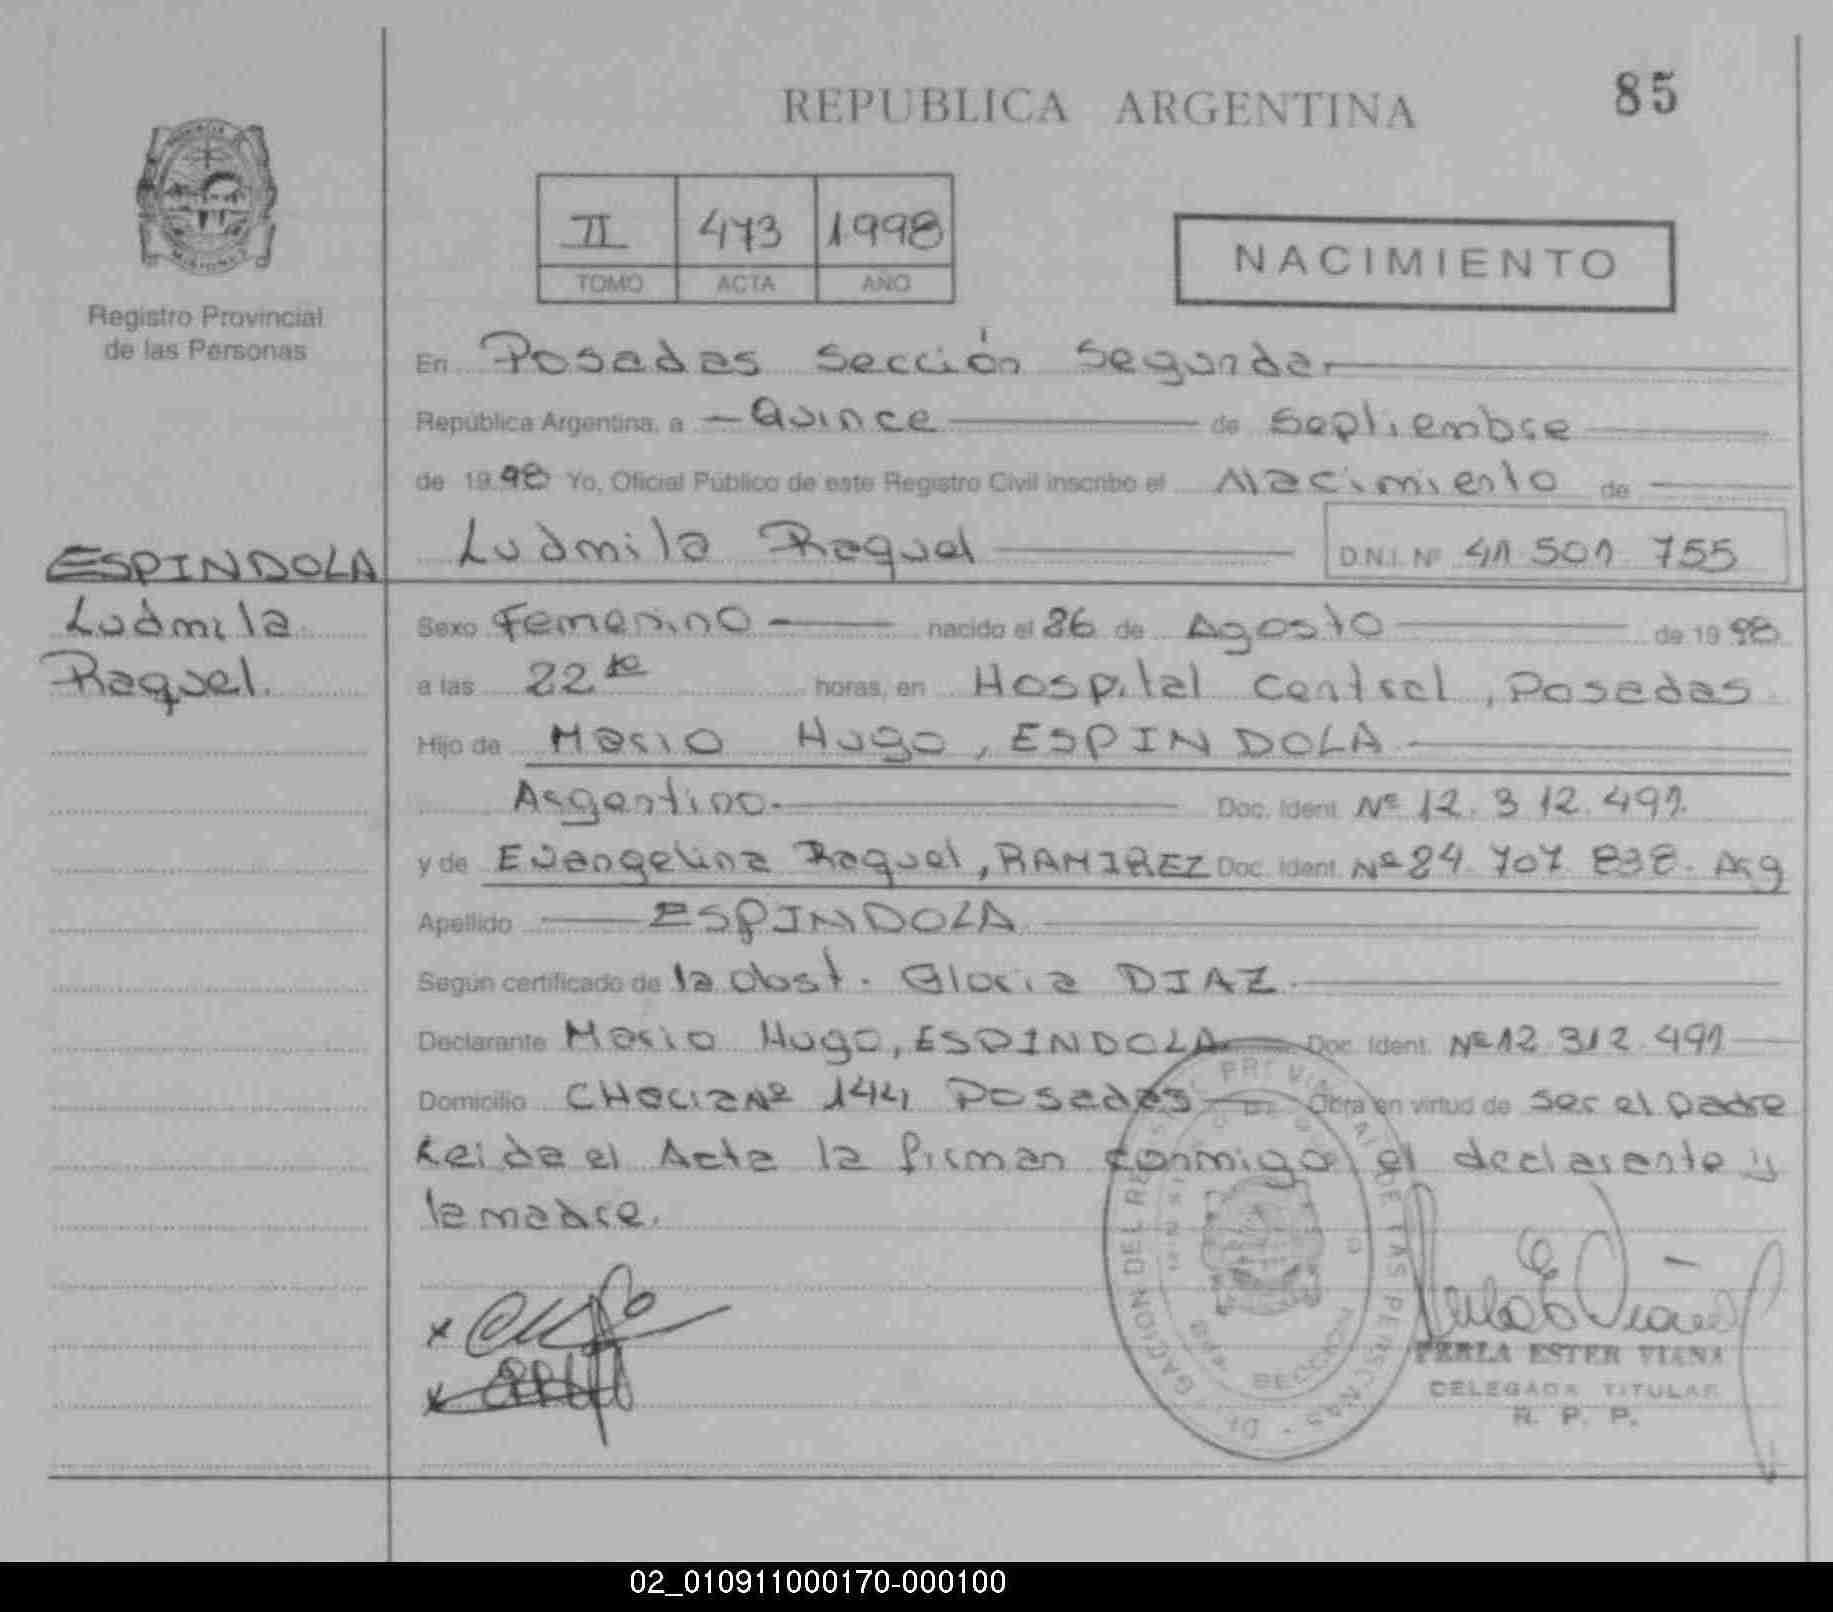 REPUBLICA ARGENTINA
85
II 473 1998
TOMO ACTA AÑO
NACIMIENTO
Registro Provincial
de las Personas
En Posadas Sección Segunda
República Argentina, a Quince de Septiembre
de 1998 Yo, Oficial Público de este Registro Civil inscribo el Nacimiento de
Ludmila Raquel D.N.I. Nº 41 501 755
ESPINDOLA
Ludmila
Raquel.
Sexo Femenino nacido el 26 de Agosto de 1998
a las 22 horas, en Hospital Central, Posadas
Hijo de Mario Hugo, ESPINDOLA
Argentino. Doc. Ident. Nº 12.312.491.
y de Evangelina Raquel, RAMIREZ Doc. Ident. Nº 24.707 838. Arg
Apellido ESPINDOLA
Según certificado de la Obst. Gloria DIAZ
Declarante Mario Hugo, ESPINDOLA Doc. Ident. Nº 12 312 491
Domicilio Nº 144 Posadas Obra en virtud de ser el padre
Leida el Acta la firman conmigo el declarante y
la madre.
PERLA ESTER VIANA
DELEGADA TITULAR
R. P. P.
02_010911000170-000100